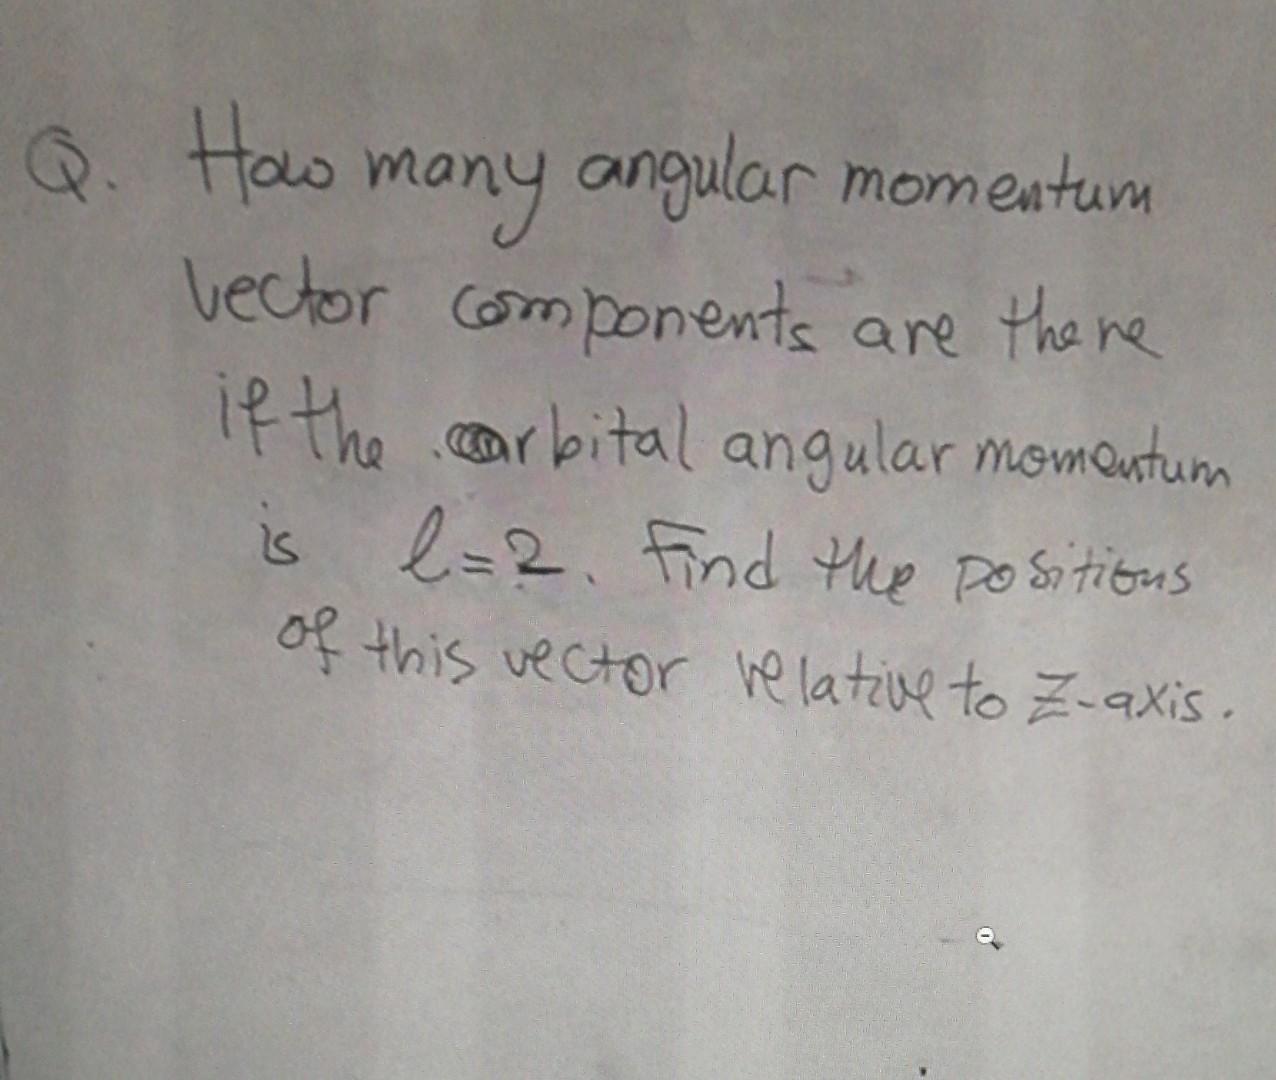 Q. How many angular momentum
vector components are there
if the orbital angular momentum
is l=2. Find the positions
of this vector relative to Z-axis.